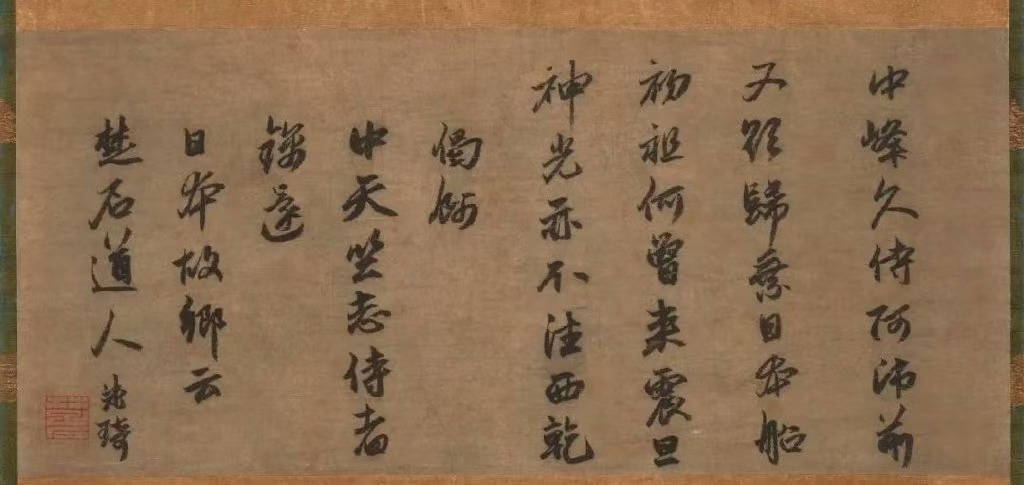 中峰久侍阿師前
又欲歸乗日本船
初祖何曾来震旦
神光亦不往西乾
偈餞
中天竺志侍者
錦還
日本故鄉云
楚石道人梵琦